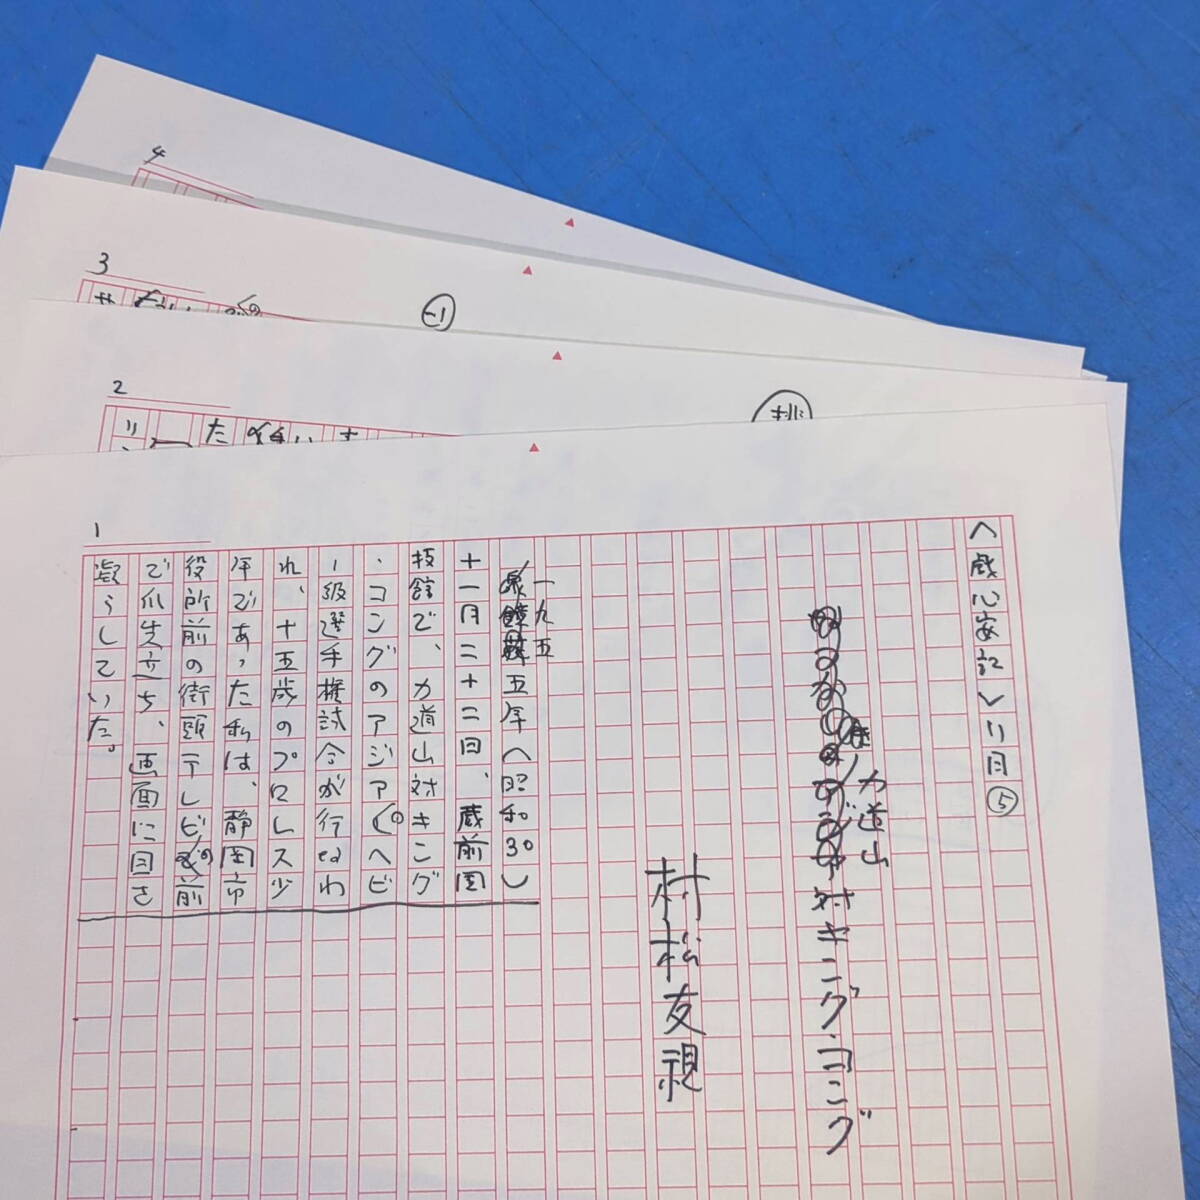 〈感心家記〉11月⑤
力道山
対キング・コング
村松友視
一九五
五年(昭和30)
十一月二十二日、蔵前国
技館で、力道山対キング
・コングのアジア・ヘビ
ー級選手権試合が行なわ
れ、十五歳のプロレス少
年であった私は、静岡市
役所前の街頭テレビの前
で爪先立ち、画面に目を
凝らしていた。
1
2
3
4